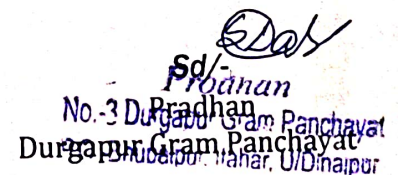 SDas
Sd/-
Pradhan
Pradhan
No.-3 Durgapur Gram Panchayat
Durgapur Gram Panchayat
Itahar, U/Dinajpur